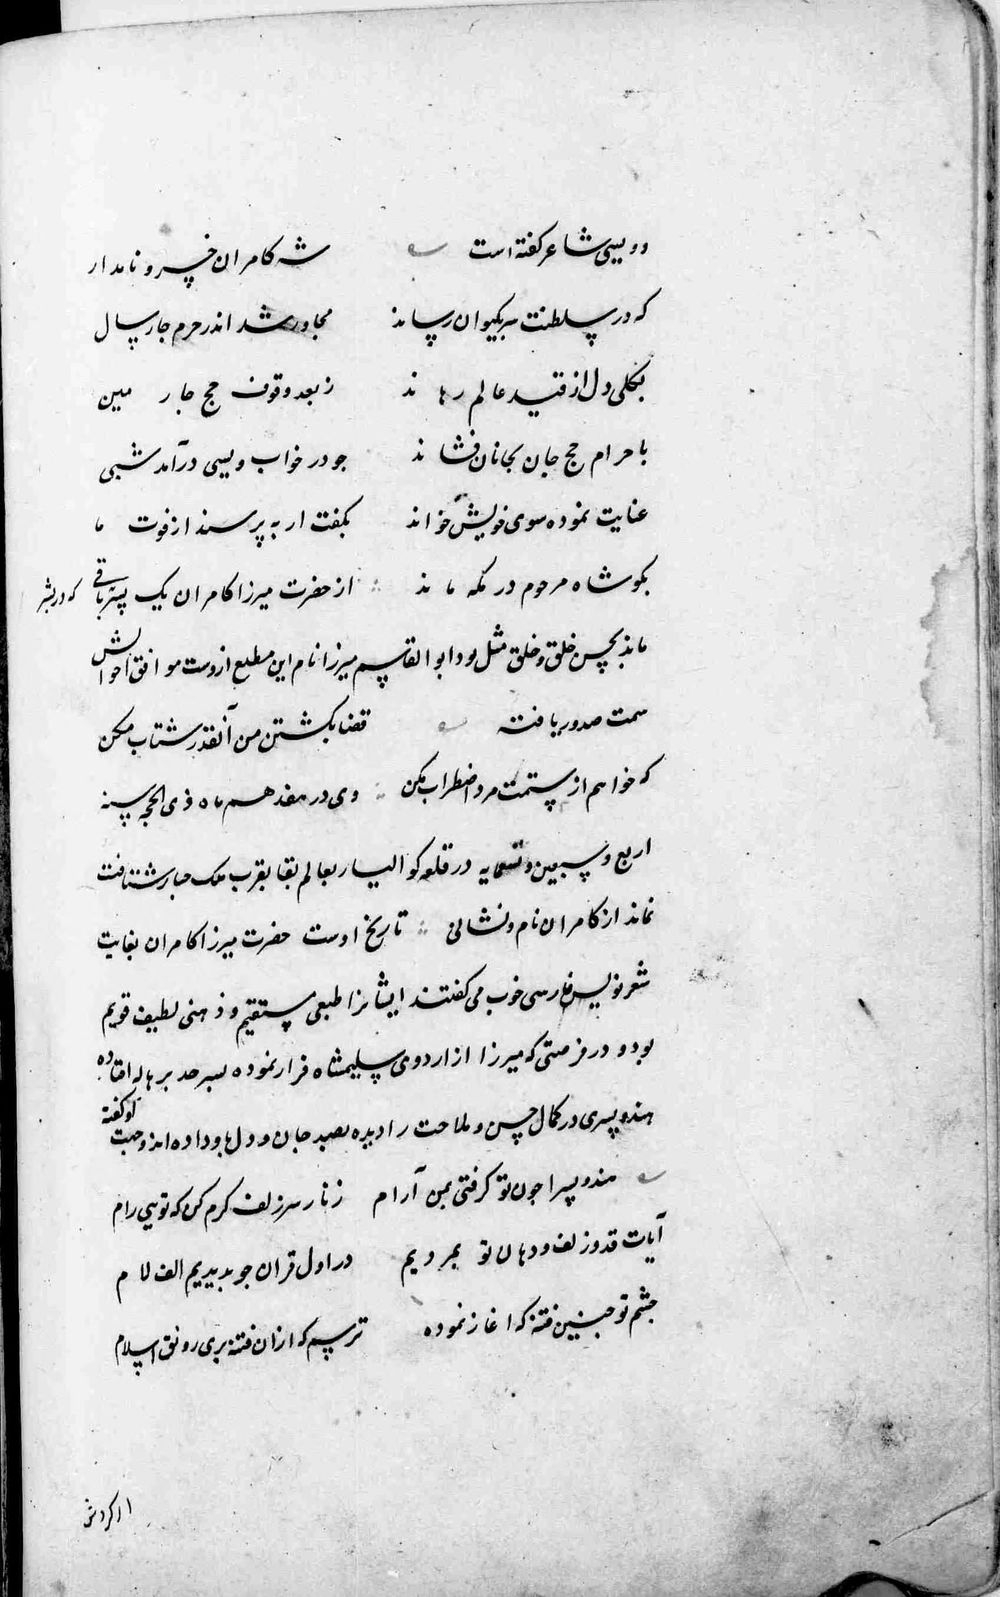 و ویسی شاعر گفته است شه کامران خسرو نامدار
که در سلطنت سر بکیوان رساند مجاور شد اندر حرم چار سال
بکلی دل از قید عالم رهاند ز بعد وقوف حج چار مین
باحرام حج جان بجانان فشاند چو در خواب ویسی درآمد شبی
عنایت نموده سوی خویش خواند بگفت ار به پرسند از فوت ما
بگو شاه مرحوم در مکه ماند از حضرت میرزا کامران یک پسر باقی که در بشر
ماند بحسن خلق و خلق مثل بود ابو القاسم میرزا نام این مطلع ازوست موافق احوالش
سمت صدور یافته قضا بکشتن من آنقدر شتاب مکن
که خواهم از ستمت مرد اضطراب مکن وی در هفدهم ماه ذی الحجه سنه
اربع و سبعین و تسعمایه در قلعه کوالیار بعالم بقا بقرب ملک جبار شتافت
نماند از کامران نام و نشانی تاریخ اوست حضرت میرزا کامران بغایت
شعر نویس فارسی خوب می گفتند ایشانرا طبعی مستقیم و ذهنی لطیف قویم
بود و در فرصتی که میرزا از اردوی سلیمشاه فرار نموده بسرحد برهاله افتاده
هندو پسری در کمال حسن و ملاحت را دیده بصید جان و دل باو داده اند و جهت او گفته
هندو پسرا چون تو گرفتی بمن آرام زنار سر زلف کرم کن که تویی رام
آیات قد و زلف و دهان تو بمردیم در اول قران چو بدیدیم الف لام
چشم تو چنین فتنه که اغاز نموده ترسم که ازان فتنه بری رونق اسلام
از گردش